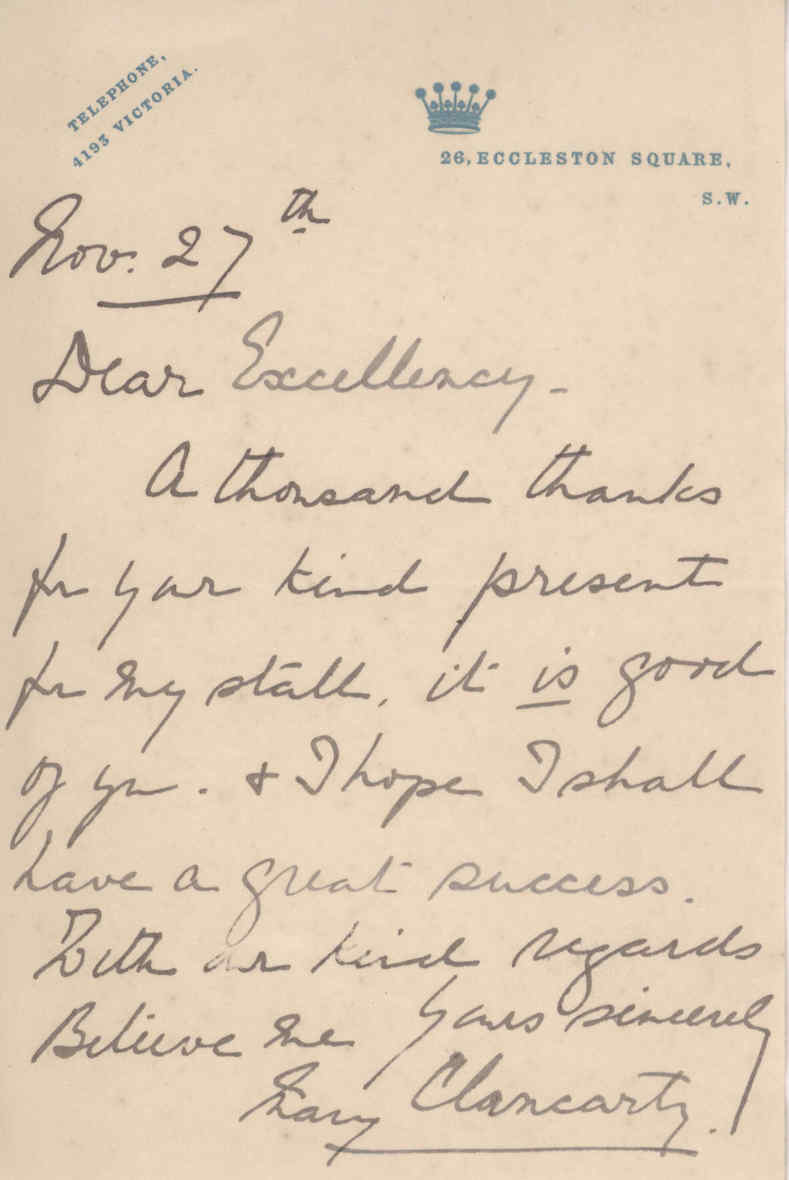 TELEPHONE,
4193 VICTORIA.
26, ECCLESTON SQUARE,
S.W.
Nov. 27th
Dear Excellency -
A thousand thanks
for your kind present
for my stall, it is good
of you. & I hope I shall
have a great success.
With our kind regards
Believe me Yours sincerely
Mary Clancarty.